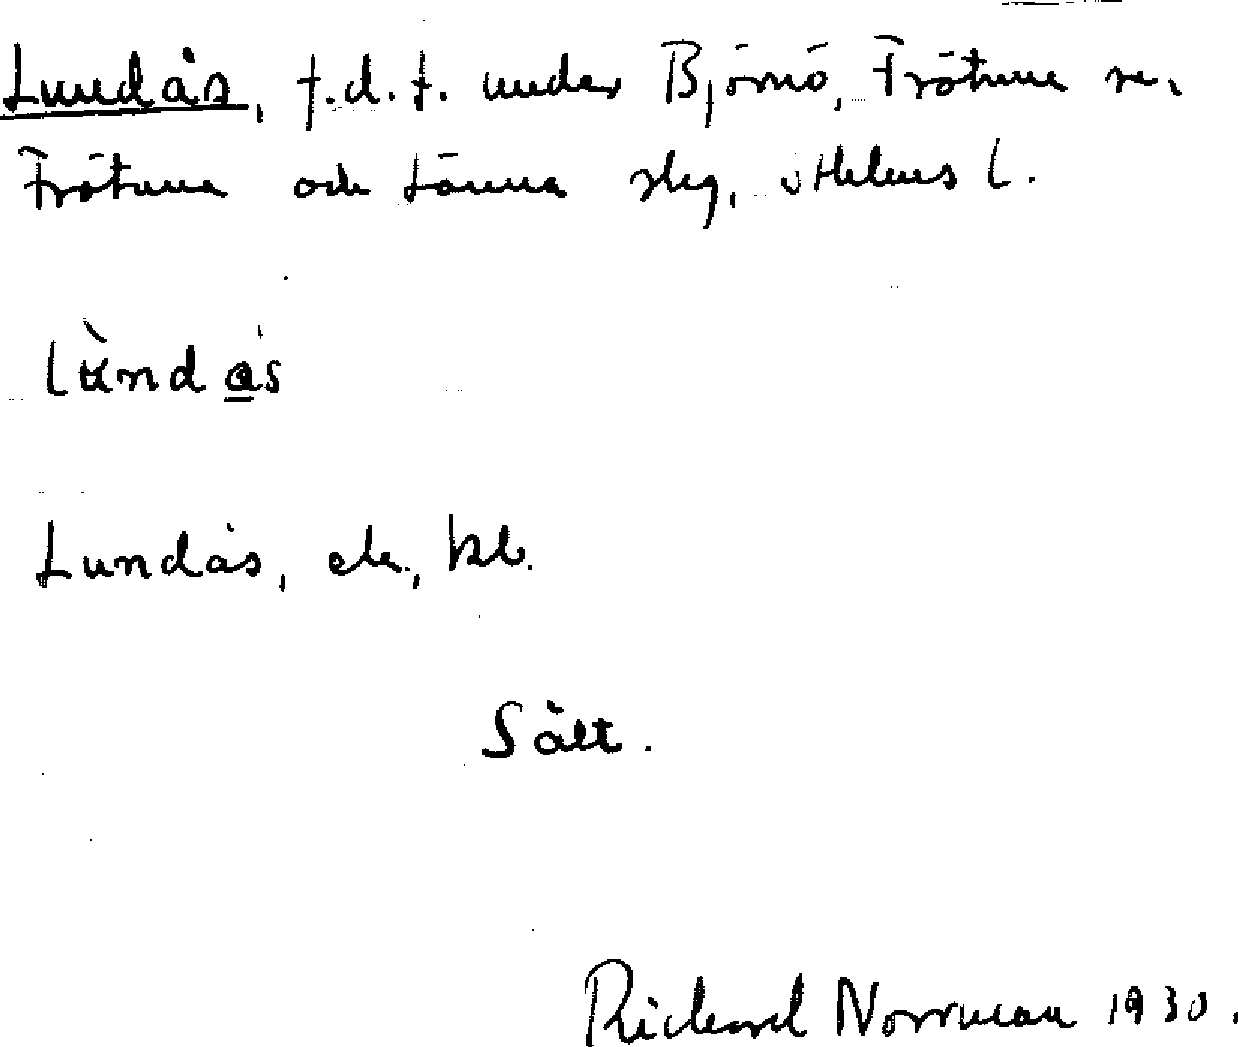 Lundås, f.d. t. under Björnö, Frötuna sn,
Frötuna och Länna skg, Sthlms l.
lùndås
Lundås, ek, kl.
Sält.
Rickard Norrman 1930.